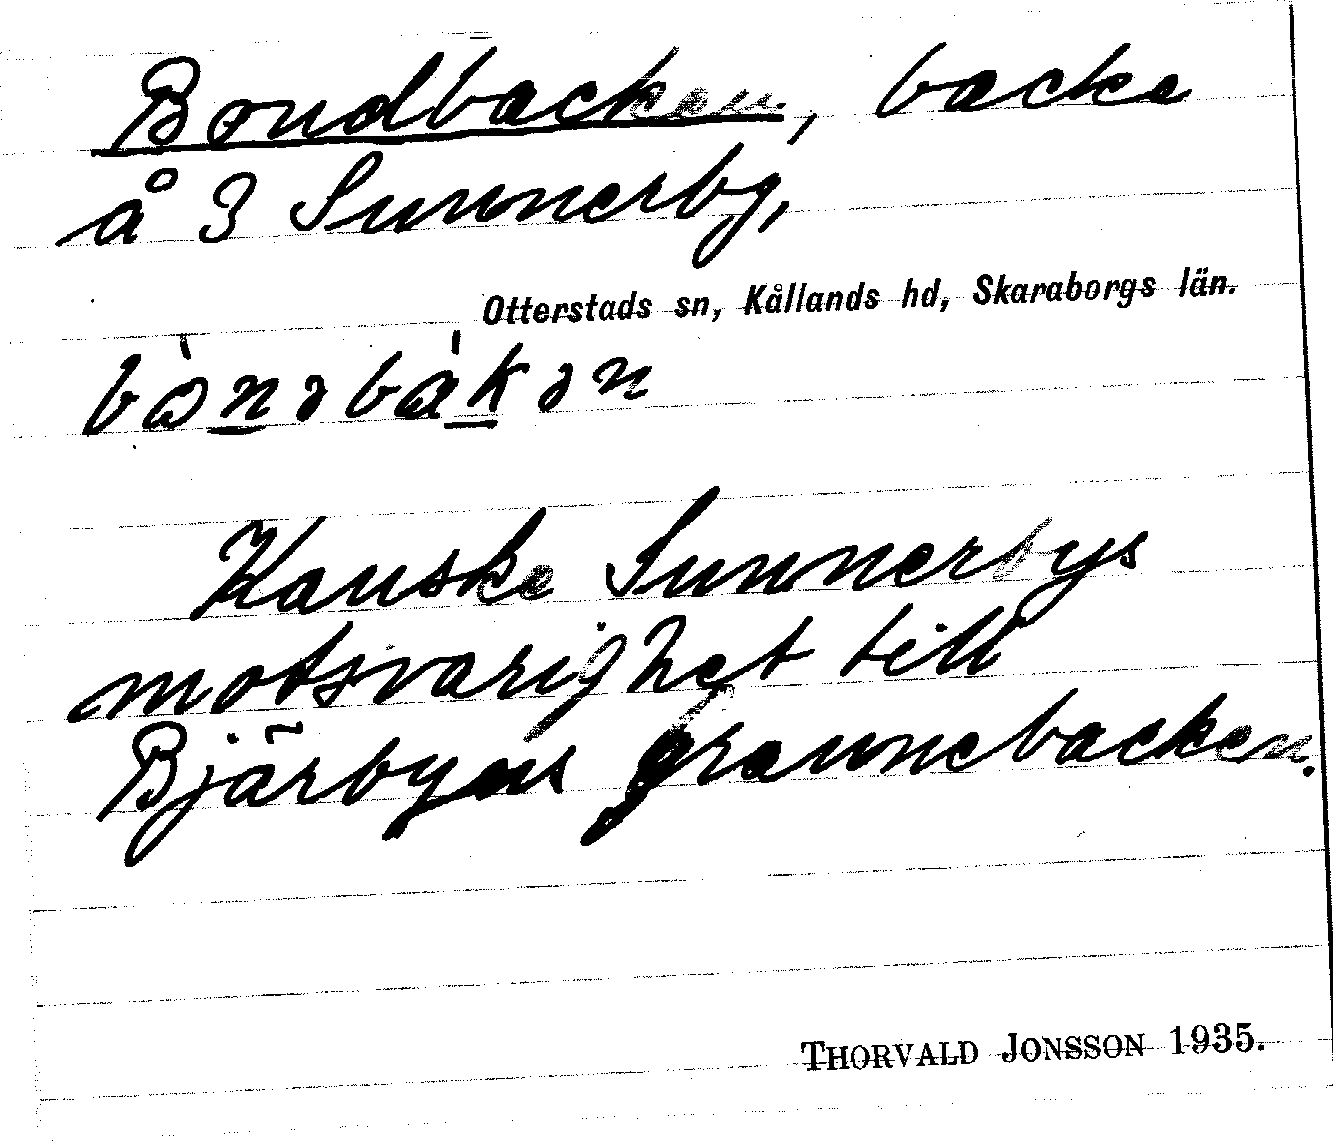 Bondbacken, backe
å 3 Sunnerby,
Otterstads sn, Kållands hd, Skaraborgs län.
bònəbàkən
Kanske Sunnerbys
motsvarighet till
Bjärbyns grannebacken.
THORVALD JONSSON 1935.